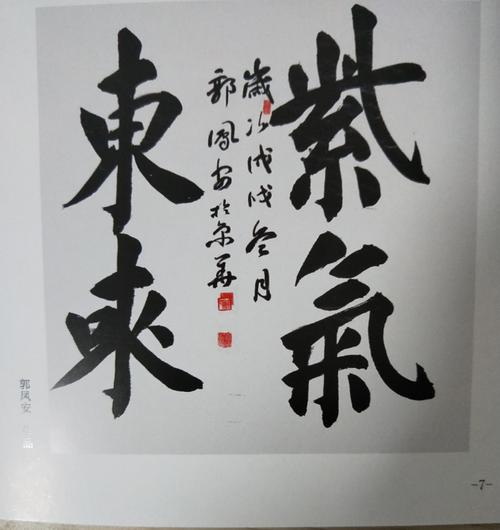 紫氣
東來
歲次戊戌冬月
郭鳳安於京華
郭凤安 作品
-7-